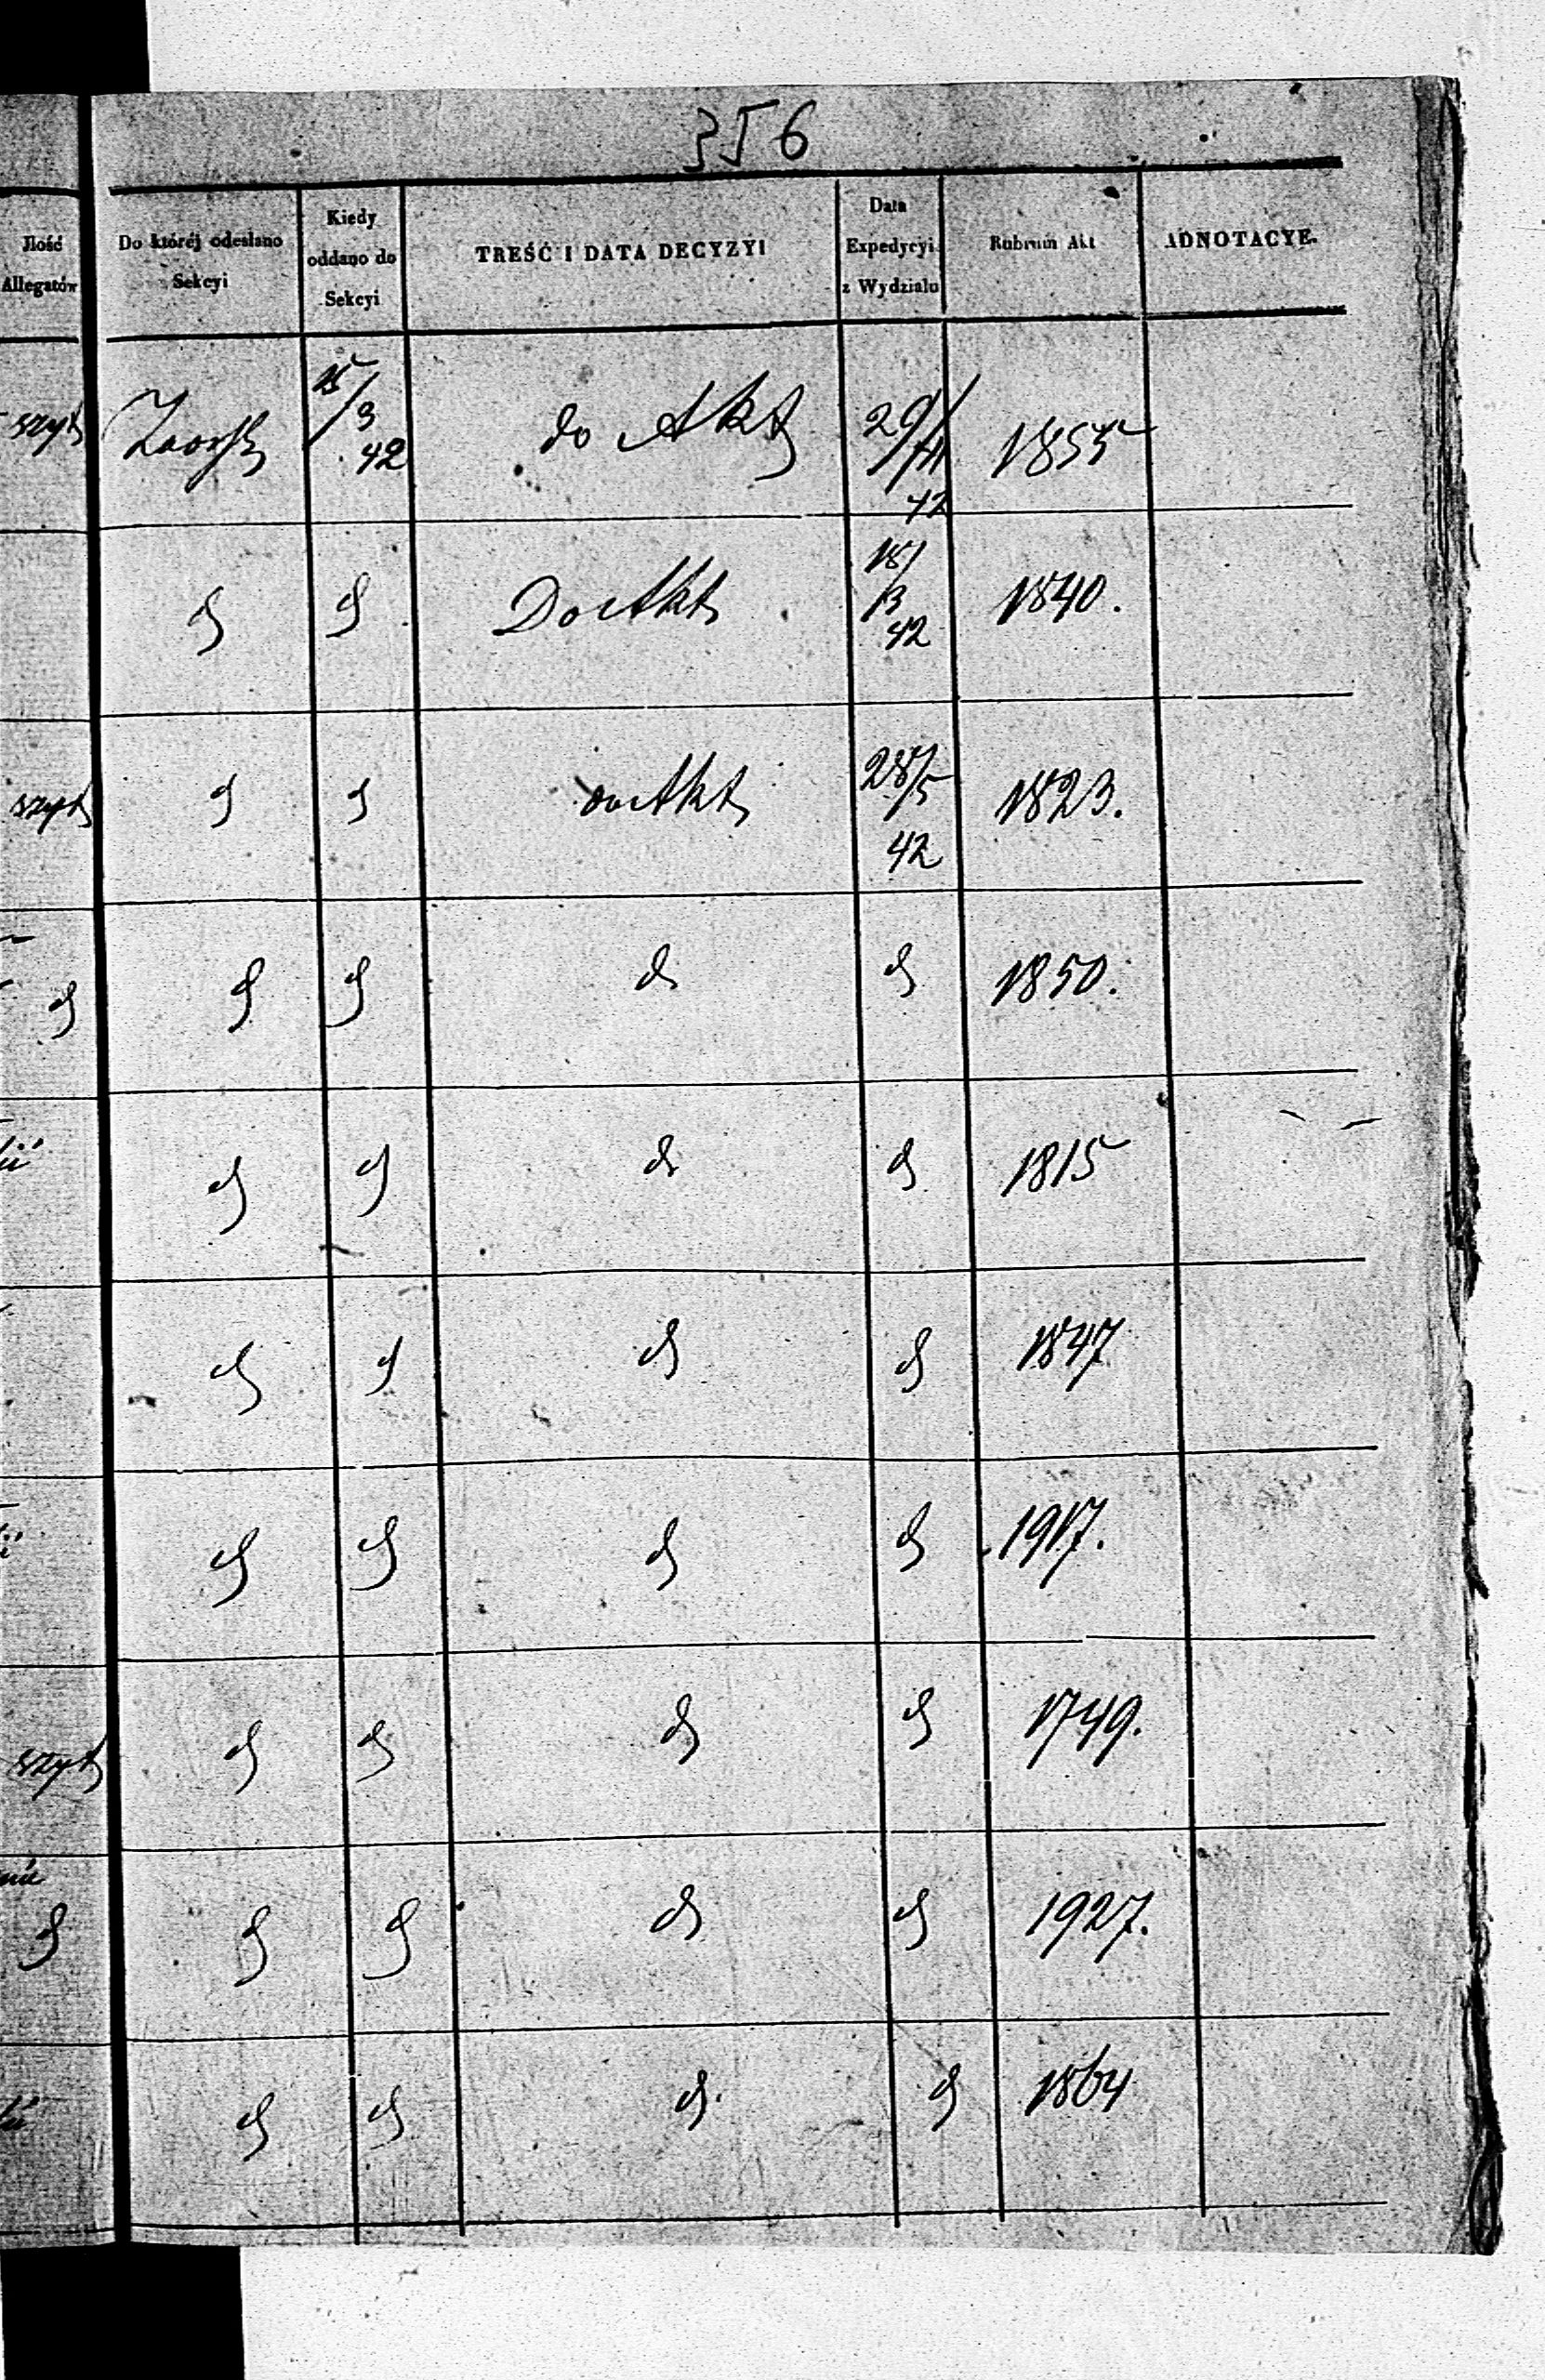 356
Jlość Allegatów
Do któréj odesłano Sekcyi
Kiedy oddano do Sekcyi
TREŚĆ I DATA DECYZYI
Data Expedycyi z Wydziału
Rubrum Akt
ADNOTACYE.
szyt 15/3 42 do Akt 42 1855
Do Akt 18/3 42 1840.
szyt Akt 28/5 42 1823.
d d d d d 1850.
d d d d 1815
d d d d 1847
d d d d 1917.
szyt d d d d 1749.
d d d d d 1927.
d d d d 1864